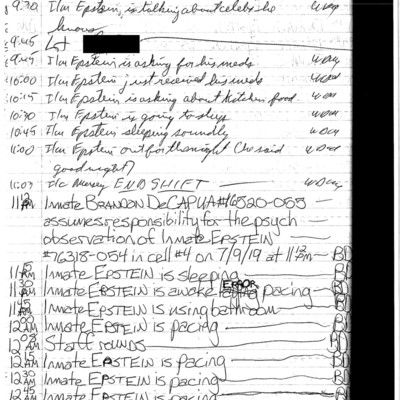 9:30 I/m Epstein, is talking about celebs he knows
9:45 Lt
9:45 I/m Epstein is asking for his meds
10:00 I/m Epstein just received his meds
10:15 I/m Epstein is asking about kitchen food
10:30 I/m Epstein is going to sleep
10:45 I/m Epstein sleeping soundly
11:00 I/m Epstein out for the night (he said
good night)
11:07 I/c Mersey END SHIFT
11:12 AM Inmate BRANDON DeCAPUA #16520-055
assumes responsibility for the psych
observation of Inmate EPSTEIN
#76318-054 in cell #4 on 7/9/19 at 11:12 pm BD
11:15 AM Inmate EPSTEIN is sleeping BD
11:30 AM Inmate EPSTEIN is awake ERROR pacing BD
11:45 AM Inmate EPSTEIN is using bathroom BD
12:00 AM Inmate EPSTEIN is pacing BD
12:08 AM Staff rounds BD
12:15 AM Inmate EPSTEIN is pacing BD
12:30 AM Inmate EPSTEIN is pacing BD
12:45 AM Inmate EPSTEIN is pacing BD